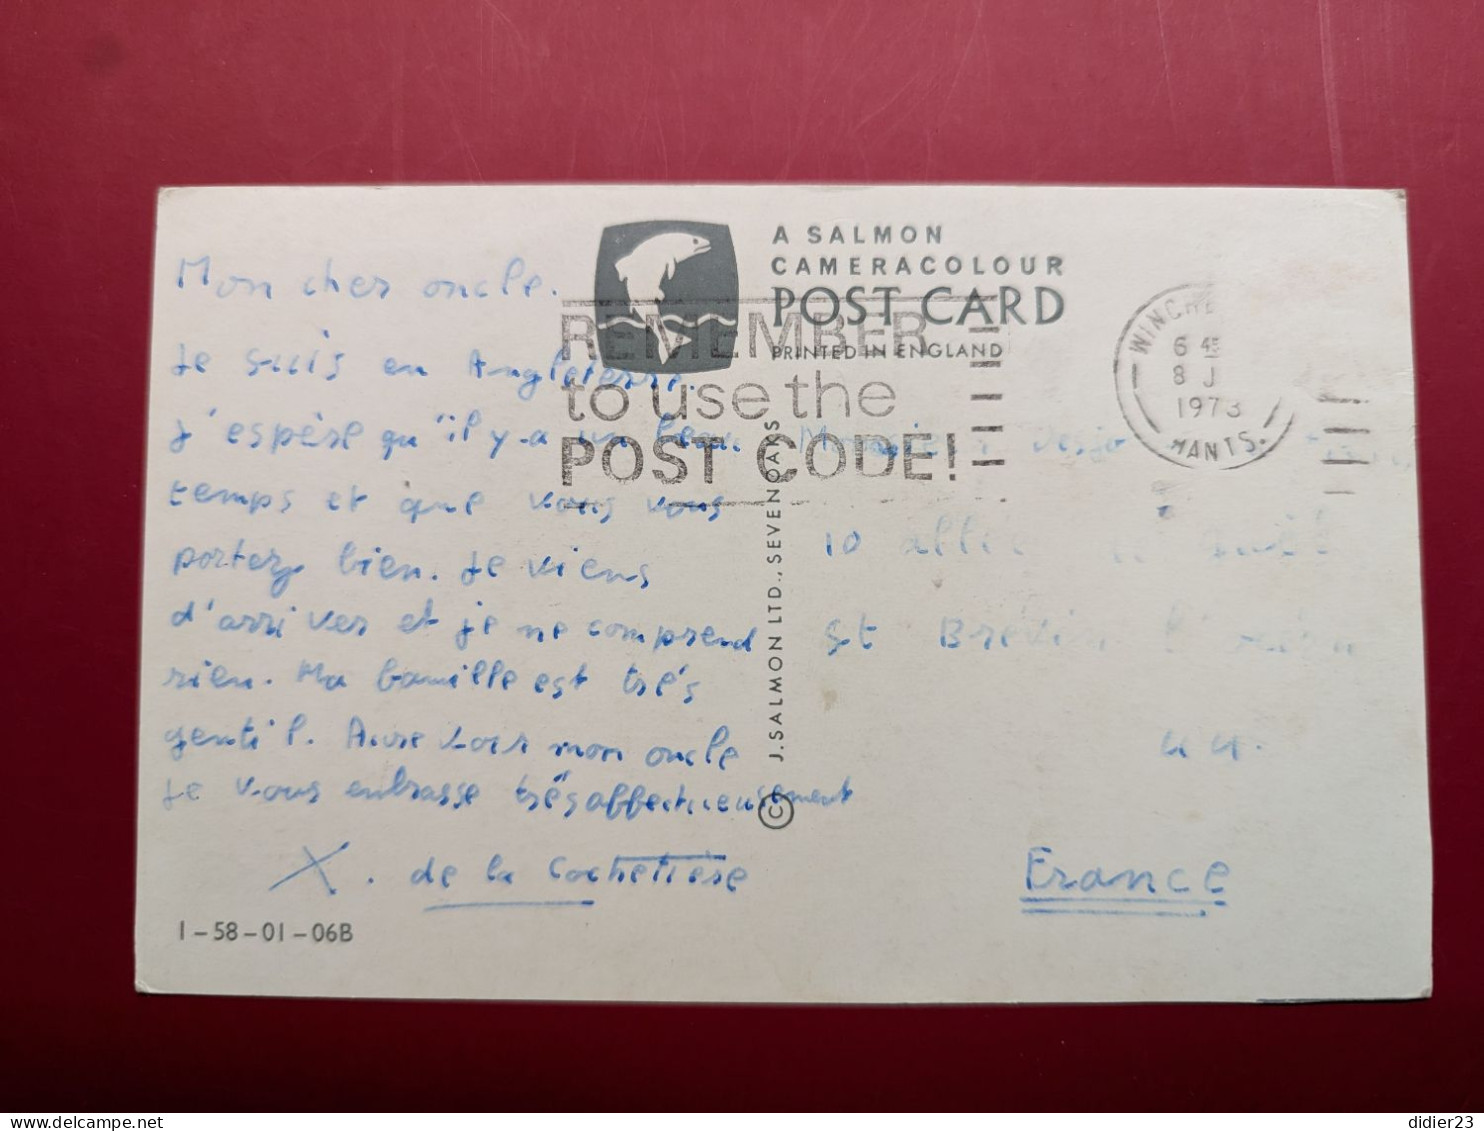 A SALMON
CAMERACOLOUR
POST CARD
PRINTED IN ENGLAND
REMEMBER
to use the
POST CODE!
6 45
8 J
1973
HANTS.
Mon cher oncle.
Je suis en Angleterre.
J'espère qu'il y-a un beau
temps et que vous vous
portez bien. Je viens
d'arriver et je ne comprend
rien. Ma famille est trés
gentil. Aurevoir mon oncle
Je vous enbrasse trés affectueusement
X. de la Cochetière
1-58-01-06B
© J. SALMON LTD., SEVENOAKS
10
St Brévin l'océan
44.
France
didier23